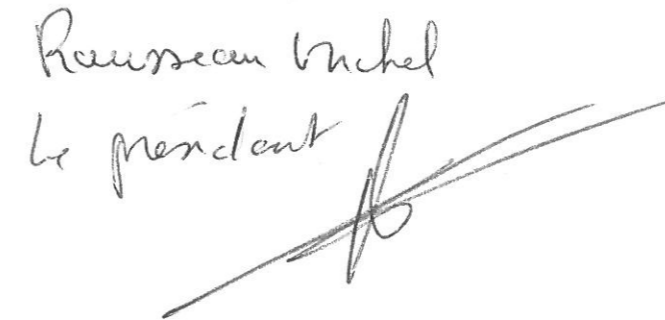 Rousseau Michel
Le président